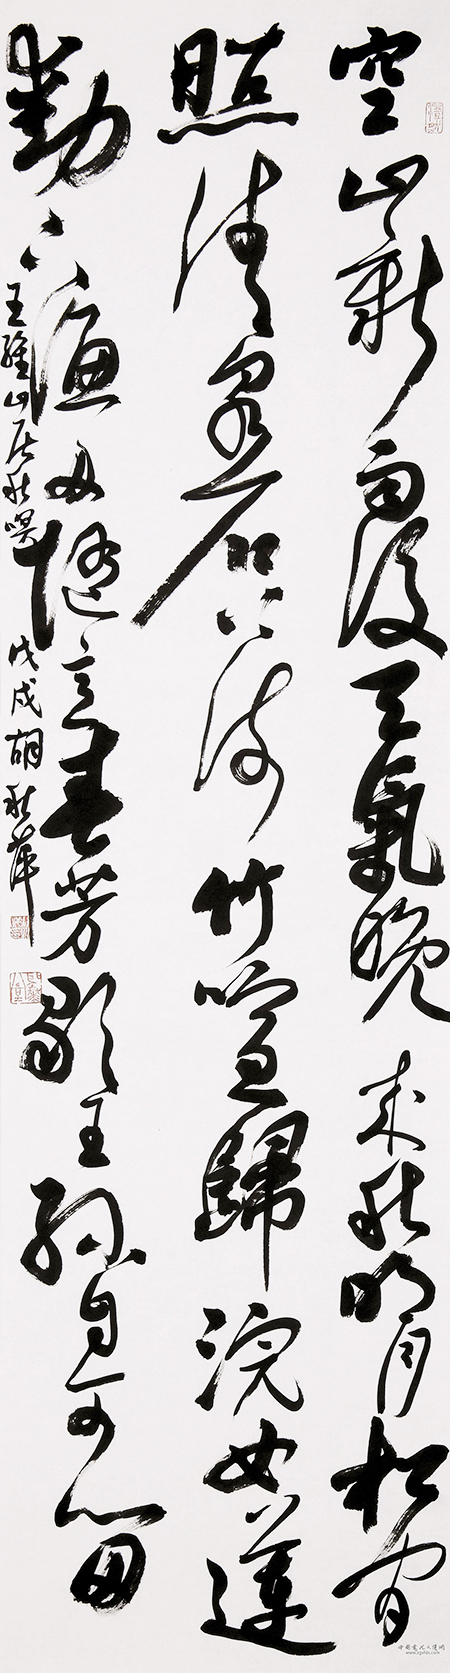 空山新雨後天氣晚來秋明月松間
照清泉石上流竹喧歸浣女蓮
動下漁舟隨意春芳歇王孫自可留
王維山居秋暝 戊戌胡秋萍